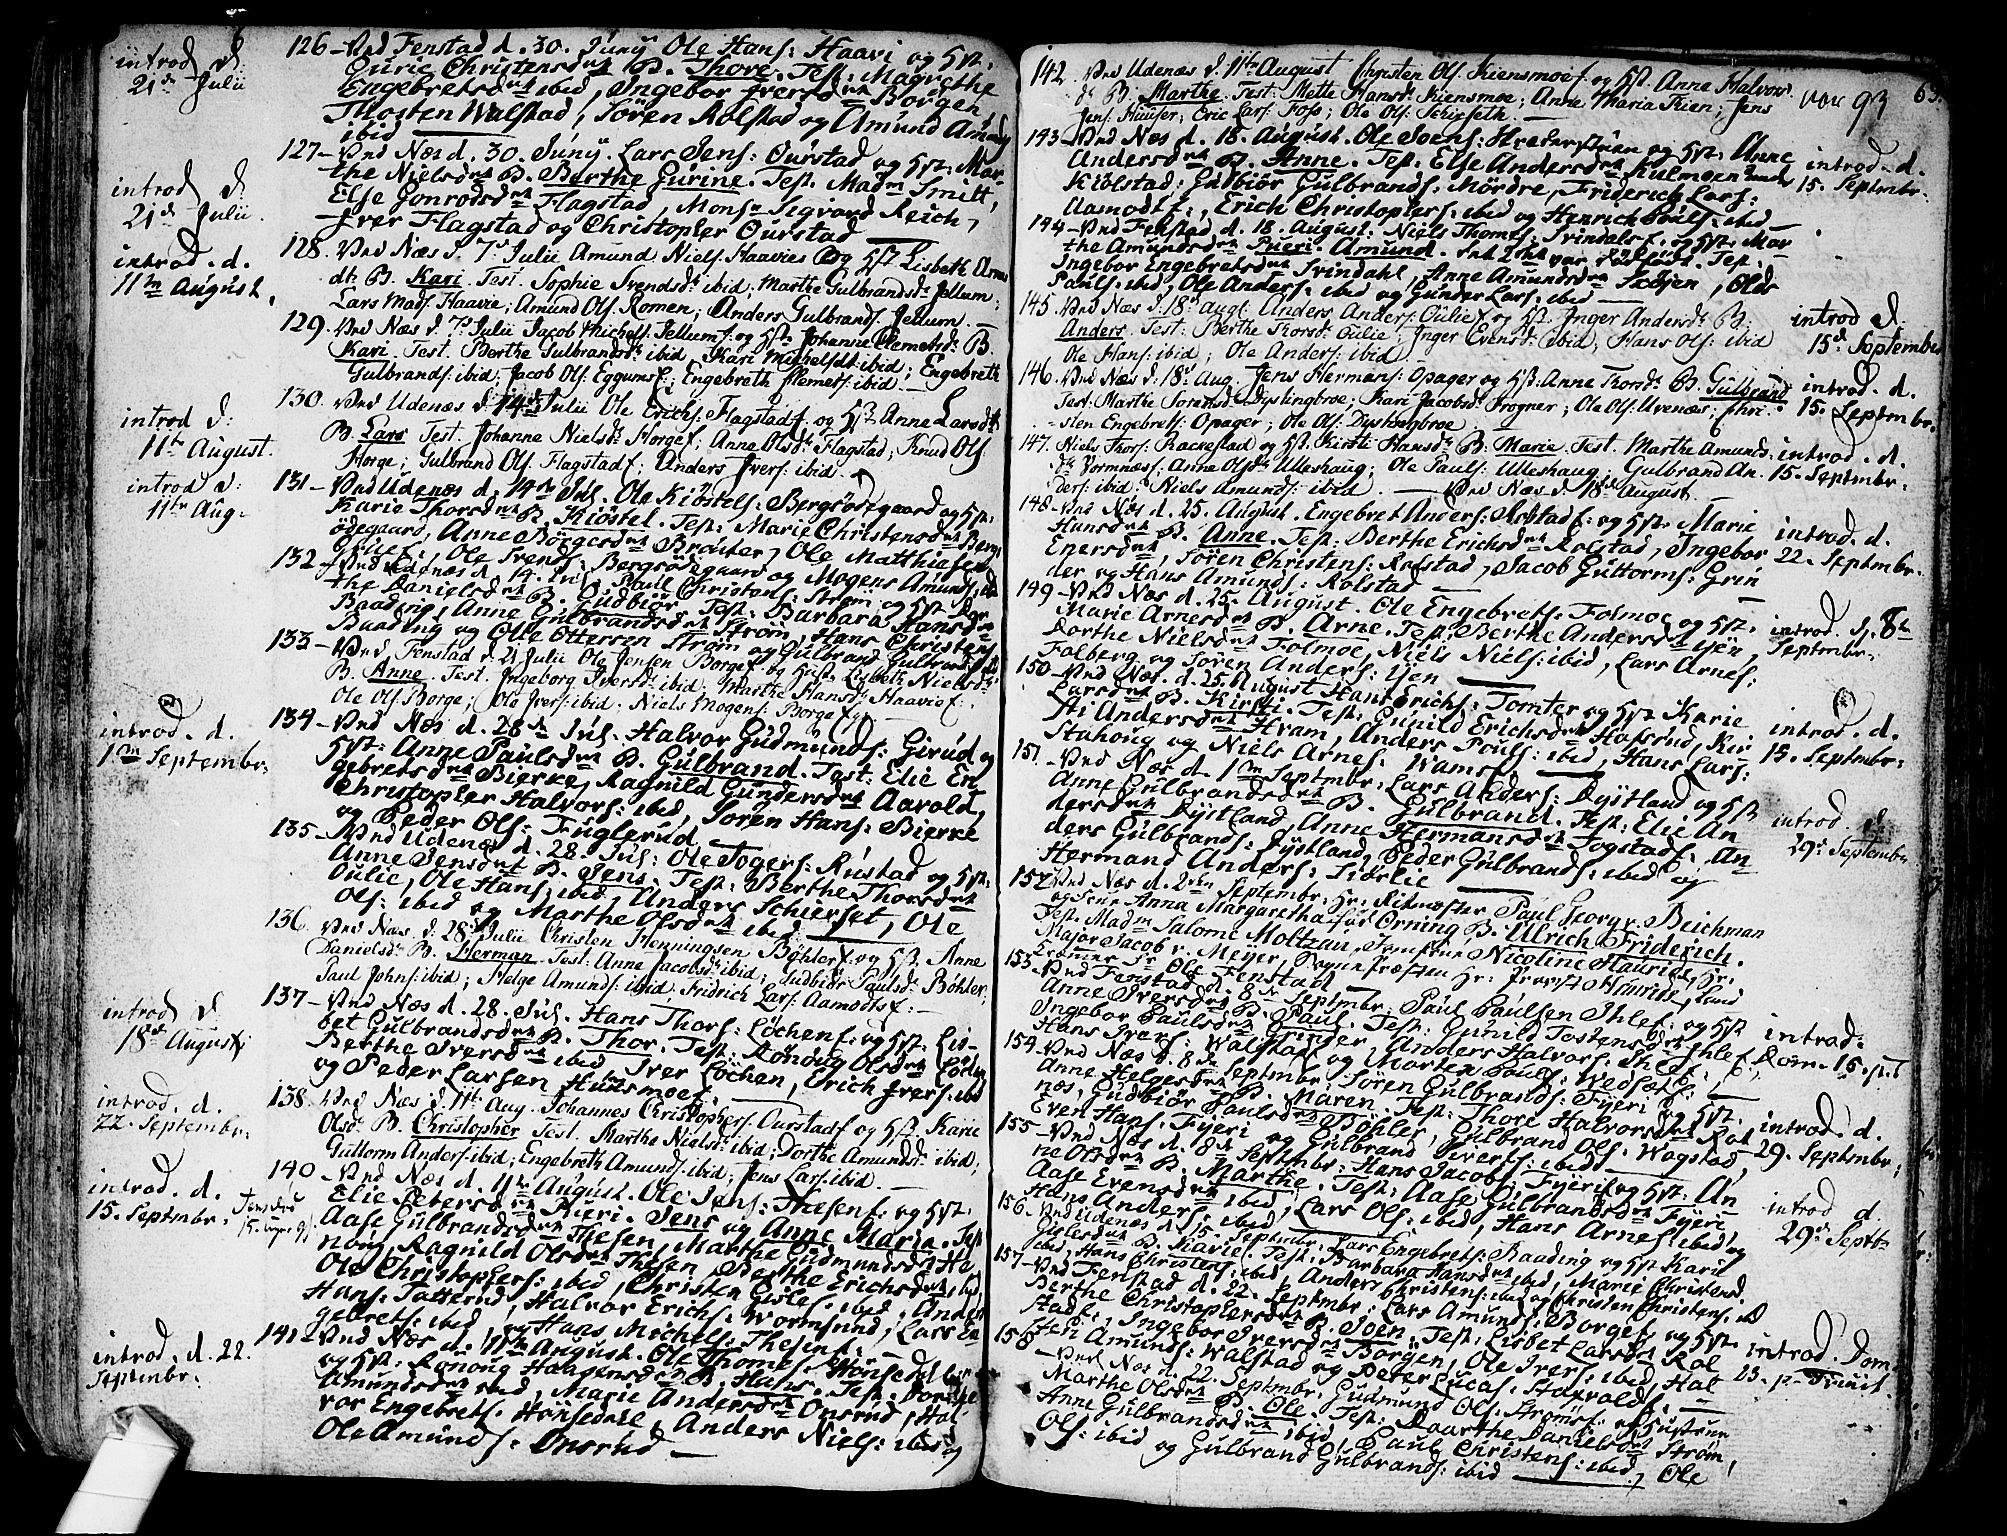 introd. d.
21de Julii
126 - Ved Fenstad d. 30. Juny Ole Hans: Haavi og Hst:
Gurie Christensdatt B. Thore. Test: Magrethe
Engebretsdtt ibid, Ingebor Iversdtt Borgen
Thosten Walstad, Sören Rolstad og Amund
ibid
introd d.
21de Julii.
127 - Ved Næs d. 30. Juny. Lars Jens: Ourstad og Hst: Mar-
the Nielsdtt B. Berthe Gurine. Test. Madm Smitt,
Else Gonrodsdtt Flagstad, Monsr Sigvard Reich,
Iver Flagstad og Christopher Ourstad
introd. d.
11tn August.
128. Ved Næs d. 7de Julii Amund Niels: Haavies og Hst Lisbeth
dt: B. Kari. Test. Sophie Svendsdr ibid; Marthe Gulbrandsdr Jellum;
Lars Mads: Haavie; Amund Ols: Romen; Anders Gulbrands: Jellum.
129. Ved Næs d. 7de Julii Jacob Michels: Jellum f. og Hst: Johanne Clemetsdr B.
Kari. Test. Berthe Gulbrandsdr ibid, Kari Michelsdt: ibid; Engebreth
Gulbrands: ibid; Jacob Ols: Eggums f.; Engebreth Clemets: ibid.
introd d:
11te August.
130. Ved Udenæs d. 14de Julii Ole Erichs: Flagstad f. og Hst Anne Larsdt
B. Lars Test. Johanne Nielsdr Horge f, Anne Olsdr Flagstad; Knud Ols:
Horge; Gulbrand Ols: Flagstad f; Anders Ivers: ibid.
introd d:
11te Aug:
131 - Ved Udenæs d. 14de Jul. Ole Kiöstels: Bergsödegaard og Hst:
Karie Thorsdtt B. Kiöstel. Test: Marie Christensdtt Bergs
ödegaard, Anne Börgesdtt Bröuter, Ole Matthiesen
Ole Svends: Bergsödegaard og Mogens Amunds:
132 Ved Udenæs d. 14. Jul. Poull Christens: Ström og Hst: Mar-
the Danielsdtt B. Gudbiör. Test: Barbara Hansdtt
Baading, Anne Gulbrandsdtt Ström, Hans Christens:
Baading og Olle Ottersen Ström og Gulbrand Gulbrands:
133 - Ved Fenstad d. 21 Julii Ole Jensen Borge f og Hst. Lisbeth Nielsdr
B. Anne. Test. Ingeborg Iversdr ibid. Marthe Hansdr Haavie f.
Ole Ols: Borge; Ole Ivers: ibid. Niels Mogens: Borge f.
introd. d.
1ten Septembr:
134 - Ved Næs d. 28de Jul. Halvor Gudmunds: Girud og
Hst: Anne Paulsdtt B. Gulbrand. Test: Elie En
gebretsdtt Bierke, Ragnild Gundersdtt Aarold,
Christopher Halvors: ibid, Sören Hans: Bierke
og Peder Ols: Fuglerud
135 - Ved Udenæs d. 28. Jul: Ole Togers: Rustad og Hst:
Anne Jensdtt B. Jens. Test: Berthe Thorsdtt
Oulie, Ole Hans: ibid, Anders Schierset, Ole
Ols: ibid og Marthe Olsdtt ibid
136. Ved Næs d. 28de Julii Christen Henningsen Böhler f. og Hst. Anne
Danielsdr B. Herman Test: Anne Jacobsdr ibid; Gudbiör Paulsdr Böhler;
Paul Johns: ibid; Helge Amunds: ibid; Fridrich Lars: Aamodts f.
introd d.
18de August:
137 - Ved Næs d. 28. Jul. Hans Thors: Löchen f. og Hst: Lis-
bet Gulbrandsdtt B. Thor. Test: Rönoug Olsdtt Löchen
Berthe Iversdtt ibid Iver Löchen, Erich Ivers: ibid
og Peder Larsen Huusmoe f.
introd. d.
22. Septembr:
138. Ved Næs d. 11te Aug. Johannes Christophers: Ourstad f og Hst. Karie
Olsdr B. Christopher Test. Marthe Nielsdr ibid; Dorthe Amundsdr ibid;
Guttorm Anders: ibid; Engebreth Amunds: ibid; Jens Lars: ibid.
introd. d.
15. Septembr:
140 Ved Næs d. 11te August. Ole Jens: Thesen f: og Hst.
Elie Petersdtt Pueri. Jens og Anne Maria. Test
Aase Gulbrandsdtt Thesen, Marthe Gudmundsdtt Ha
noug, Ragnild Olsdtt Thesen, Berthe Erichsdtt ibid,
Ole Christophers: ibid, Christen Eisle: ibid, Anders
Hans: Tatterud, Halvor Erichs: Wormsund, Lars En
gebrets: ibid, og Hans Michels: Thesen f:
introd. d. 22.
Septembr:
141 - Ved Næs d. 11te August. Ole Thomes: Hönsedal
og Hst: Rönoug Haagensdtt B. Hans. Test: Dorthe
Amundsdtt ibid, Marie Andersdtt Onsrud, Hal-
vor Engebrets. Hönsedale, Anders Niels: ibid og
Ole Amunds: Onsrud
63.
vor 93
142. Ved Udenæs d. 11te August Christen Ols: Kiensmoe f. og Hst. Anne Halvors
dr B. Marthe. Test. Mette Hansdr Kiensmoe; Anne Maria Kien; Jens
Jens: Huuser; Eric Lars: Foss; Ole Ols: Schierseth.
143 - Ved Næs d. 18. August. Ole Joens: Hrederstuen og Hst: Anne
Andersdtt B. Anne. Test. Else Andersdtt Kulmoen under
Kiölstad; Gudbiör Gulbrands: Mordre, Friderich Lars:
Aamodt f:, Erich Christophers: ibid og Henrich Pouls: ibid
introd. d.
15. Septembr.
144 - Ved Fenstad d. 18. August. Niels Thomes: Svindals f. og Hst: Mar-
the Amundsdtt Pueri. Amund. Test.
Ingebor Engebretsdtt Svindahl, Anne Amundsdtt, Ole
Pauls: ibid, Ole Anders: ibid og Gunder Lars: ibid
introd d:
15de Septembr
145. Ved Næs d. 18de augt. Anders Anders: Oulie f og Hst. Inger Andersdr B.
Anders. Test: Berthe Thorsdr Oulie; Inger Evensdr ibid; Hans Ols: ibid
Ole Hans: ibid; Ole Anders: ibid.
introd. d.
15. Septembr.
146. Ved Næs d: 18de Aug. Jens Hermans: Opager og Hst: Anne Thorsdr B. Gulbrand
Test: Marthe Dystingbroe; Kari Jacobsdr Frogner; Ole Ols: Uvenæs; Chri-
sten Engebrets: Opager; Ole Ols: Dystingbroe
introd. d.
15. Septembr:
147. Niels Thors: Rackestad og Hst. Kirsti Hansdr B. Marie. Test. Marthe Amunds:
dr Wormnes f. Anne Olsdr Ulleshaug; Ole Pauls: Ulleshaug; Gulbrand An.
ders: ibid. Niels Amunds: ibid. — Ved Næs d. 18de August.
introd. d.
22. Septembr.
148 - Ved Næs d. 25. August. Engebret Anders: Rolstad f. og Hst. Marie
Hansdtt B. Anne. Test. Berthe Erichsdtt Rolstad, Ingebor
Enersdtt, Sören Christens: Rolstad, Jacob Guttorms: Grin
der og Hans Amunds: Rolstad
introd. d. 8de
Septembr.
149 - Ved Næs d. 25. August. Ole Engebrets: Folmoe og Hst.
Marie Arnesdtt B. Arne. Test: Berthe Andersdtt Yen,
Dorthe Nielsdtt Folmoe, Niels Niels: ibid, Lars Arnes:
Folberg og Sören Anders: Yen
introd. d.
15. Septembr:
150 - Ved Næs d. 25. August Hans Erichs: Tomter og Hst Karie
Larsdtt B. Kirsti. Test: Gunild Erichsdtt Hofsrud, Kir
sti Andersdtt Hvam, Anders Pouls: ibid, Hans Lars:
Stahoug og Niels Arnes: Wams f.
introd. d.
29de Septembr
151 - Ved Næs d. 1ten Septembr. Lars Anders: Dystland og Hst
Anne Gulbrandsdtt B. Gulbrand. Test: Elie An
dersdtt Dystland, Anne Hermansdtt Fogstad f. An
ders Gulbrands: Dystland, Peder Gulbrands: ibid og
Hermand Anders: Tiærlie
152 Ved Næs d. 2den Septembr. Hr: Ritmester Paul Georg v. Beichman
og Frue Anna Margaretha för Orning B. Ulrich Friderich.
Test: Madm Salome Moltzau, Jomfrue Nicoline Maurine, Hr.
Major Jacob v. Meyer, Sognepræsten Hr. Provst Maurine, Land
Cramer Sr Ole Fenstad
introd:
Dom. 15. p. T
153 - Ved Fenstad d. 8de Septembr. Paul Paulsen Ihle f. og Hst
Anne Iversdtt B. Paul. Test: Gunild Tostensdtt Ihle f.
Ingebor Paulsdtt Grinder, Anders Halvors: Ihle f.
Hans Ivers: Walstad og Morten Pouls: Wedset f.
introd. d.
29. Septembr:
154 - Ved Næs d. 8de Septembr. Sören Gulbrands: Fyeri og Hst.
Anne Helgesdtt B. Maren. Test: Thore Halvorsdtt Rol
nes, Gudbiör Paulsdtt Böhler, Gulbrand Ols: Wogstad,
Even Hans: Fyeri og Gulbrand Iverts: ibid
introd d.
29de Septbr
155 - Ved Næs d. 8de Septembr: Hans Jacobs: Fyeri og Hst: An
ne Olsdtt B. Marthe. Test: Aase Gulbrandsdtt Fyeri
Aase Evensdtt ibid, Lars Ols: ibid, Hans Arnes: ibid og
Hans Anders: ibid.
156 - Ved Udenæs d. 15. Septembr: Lars Engebrets: Baading og Hst Kari
Gislesdtt B. Marie. Test: Barbara Hansdtt ibid, Marie Christensd.
ibid, Hans Christens: ibid, Anders Christens: ibid og Christen Christens. ibid
introd: Dom.
23. p. Trinit.
157 - Ved Fenstad d. 22. Septembr: Lars Amunds: Borge f. og Hst.
Berthe Christophersdtt B. Joen. Test: Lisbet Larsdtt Rol
stad, Ingebor Iversdtt Borgen, Ole Ivers: ibid, Hal
sten Amunds: Walstad og Peter Lucas: Haxvold.
158 - Ved Næs d. 22. Septembr. Gudmund Ols: Ströms f. og Hustrue
Marthe Olsdtt B. Ole. Test: Daarthe Danielsdtt Ström,
Anne Gulbrandsdtt ibid, Paul Christens: ibid, Ole
Ols: ibid og Gulbrand Gulbrands: ibid